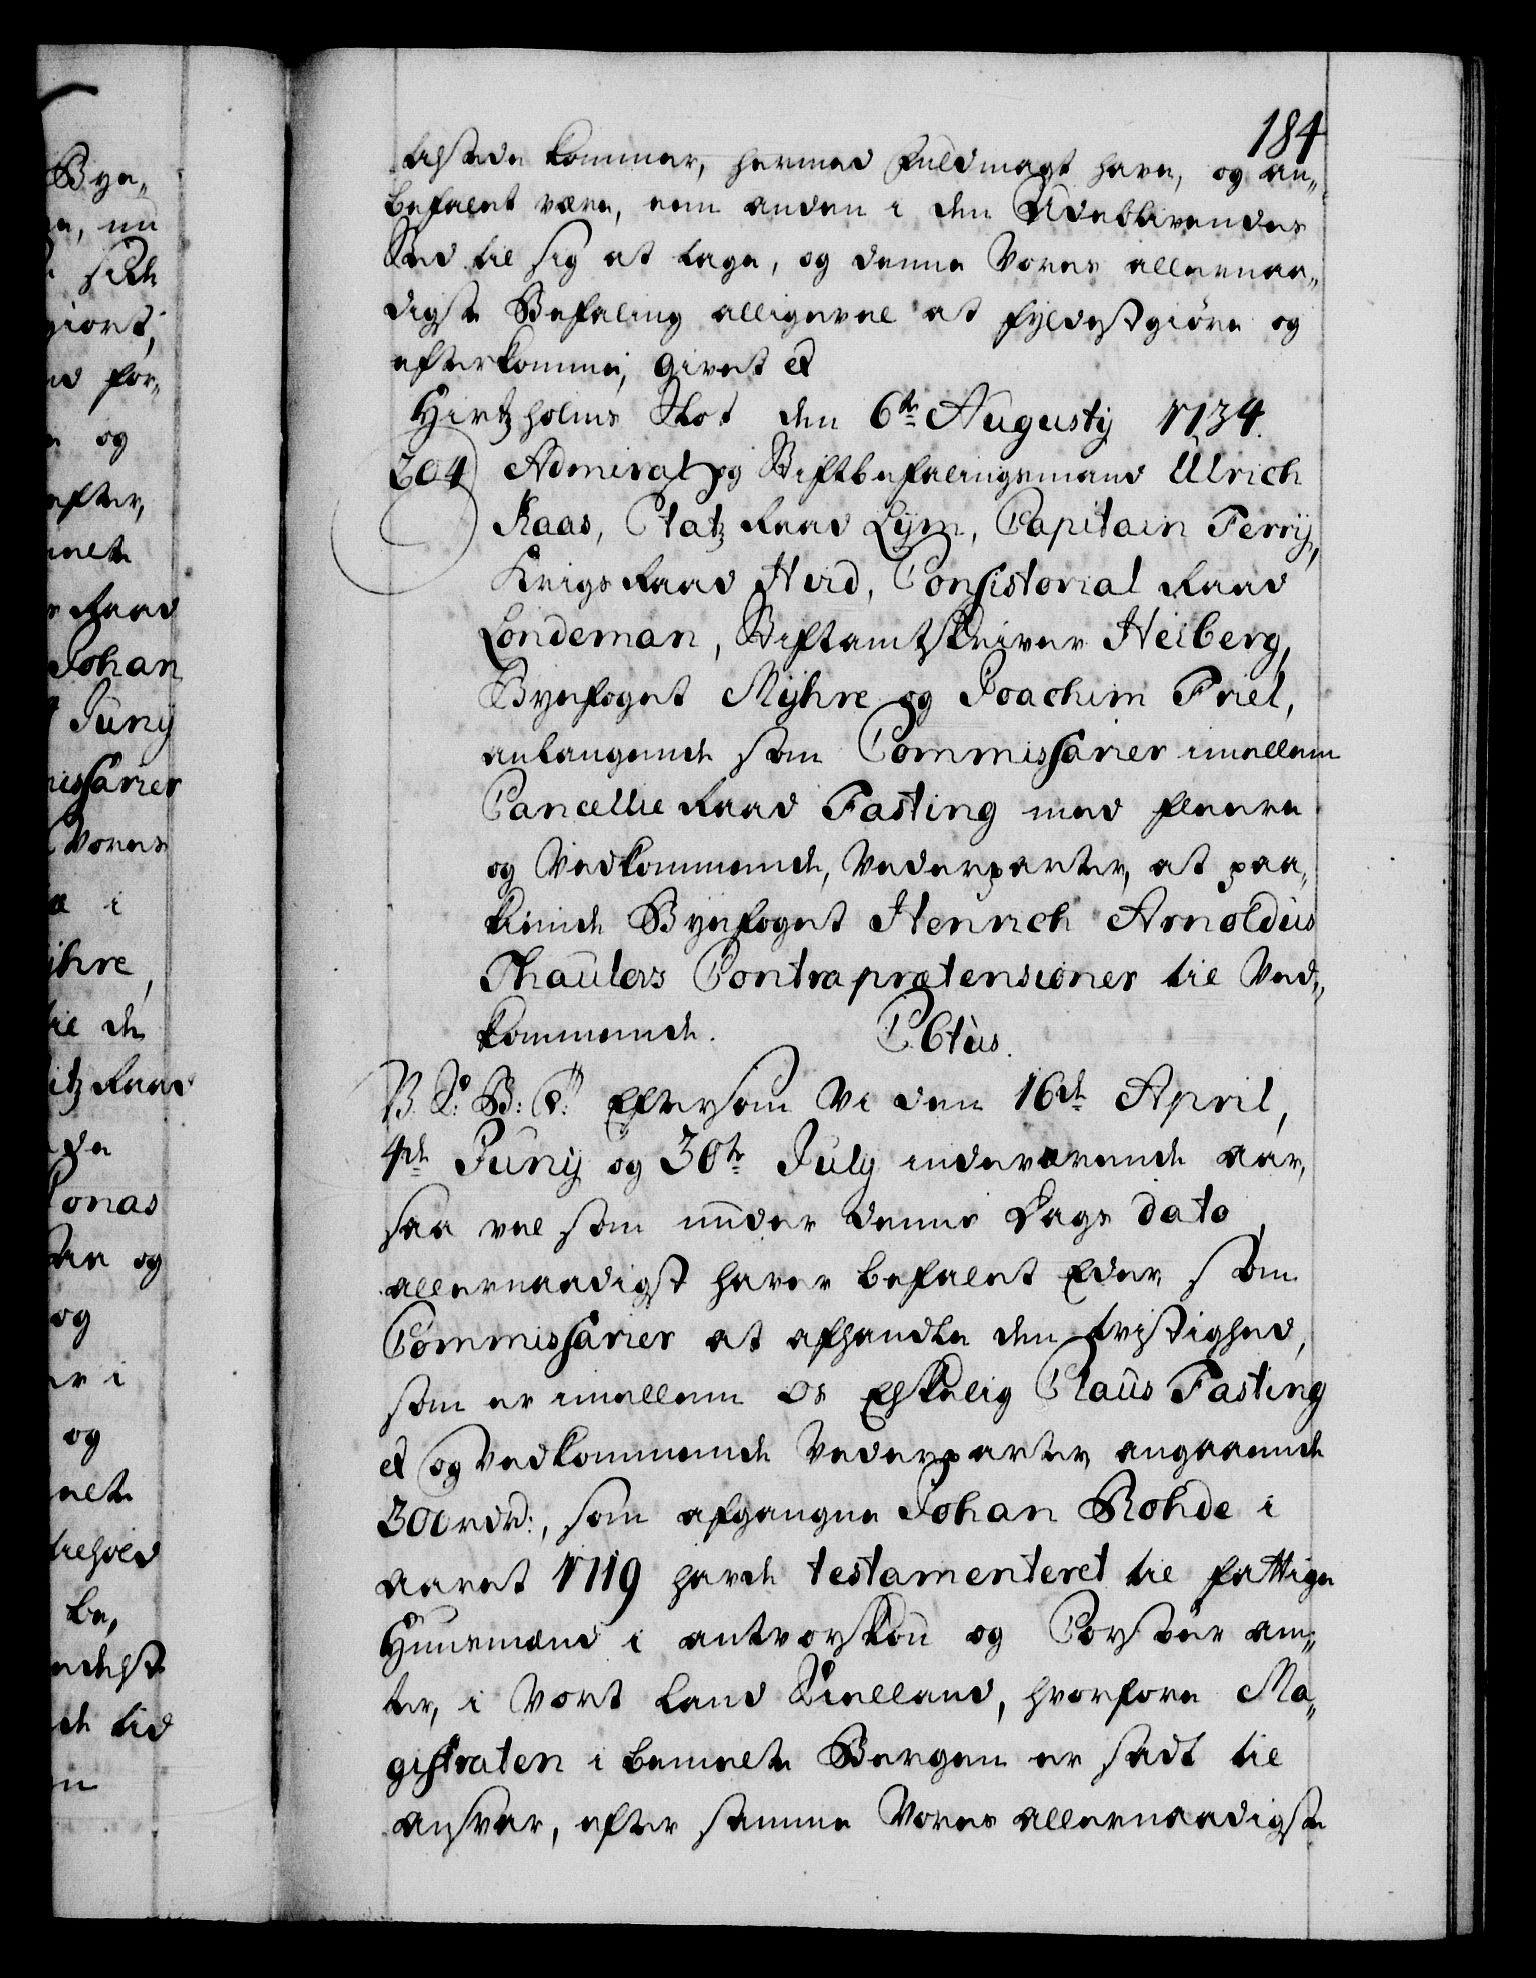 184
tilstede kommer, hermed Fuldmagt have, og an„
befalet være, een anden i den Udeblivendes
Sted til sig at tage, og denne Vores allernaa„
digste Befaling alligevel at fyldestgiøre og
efterkomme, Givet &
Hirtzholms Slot den 6te Augustij 1734.
204 Admiral og Stiftbefalingsmand Ulrich
Kaas, Etatz Raad Lÿm, Capitain Ferrÿ,
Krigs Raad Hvid, Consistorial Raad
Londeman, Stiftamtskriver Heiberg,
Byefoget Mÿhre og Joachim Friel,
anlangende som Commissarier imellem
Cancellie Raad Fasting med fleere
og Vedkommende, Vederparter, at paa„
kiende Byefoget Henrich Arnoldus
Thaulovs Contraprætensioner til Ved„
kommende. P. Ctus.
V. S: B: G: Eftersom Vi den 16de April,
4de Junij og 30te July indeværende aar,
saa vel som under denne Dags dato
allernaadigst haver befalet Eder, som
Commissarier at afhandle den tvistighed,
som er imellem Os Elskelig Claus Fasting
& og Vedkommende Vederparter, angaaende
300 rdr:, som afgangne Johan Rohde i
Aaret 1719 havde testamenteret til fattige
Huusmænd i Antvorskou og Corsøer am„
ter, i Vort Land Siælland, hvorfore Ma„
gistraten i bemelte Bergen er sadt til
ansvar, efter samme Vores allernaadigste
Bye„
nu
giort,
for„
og
efter,
melte
Raad
Johan
Junij
missarier
Vores
i
ÿhre,
til de
atz Raad
Jonas
og
og
er i
og
melte
tilhold
be„
de tid